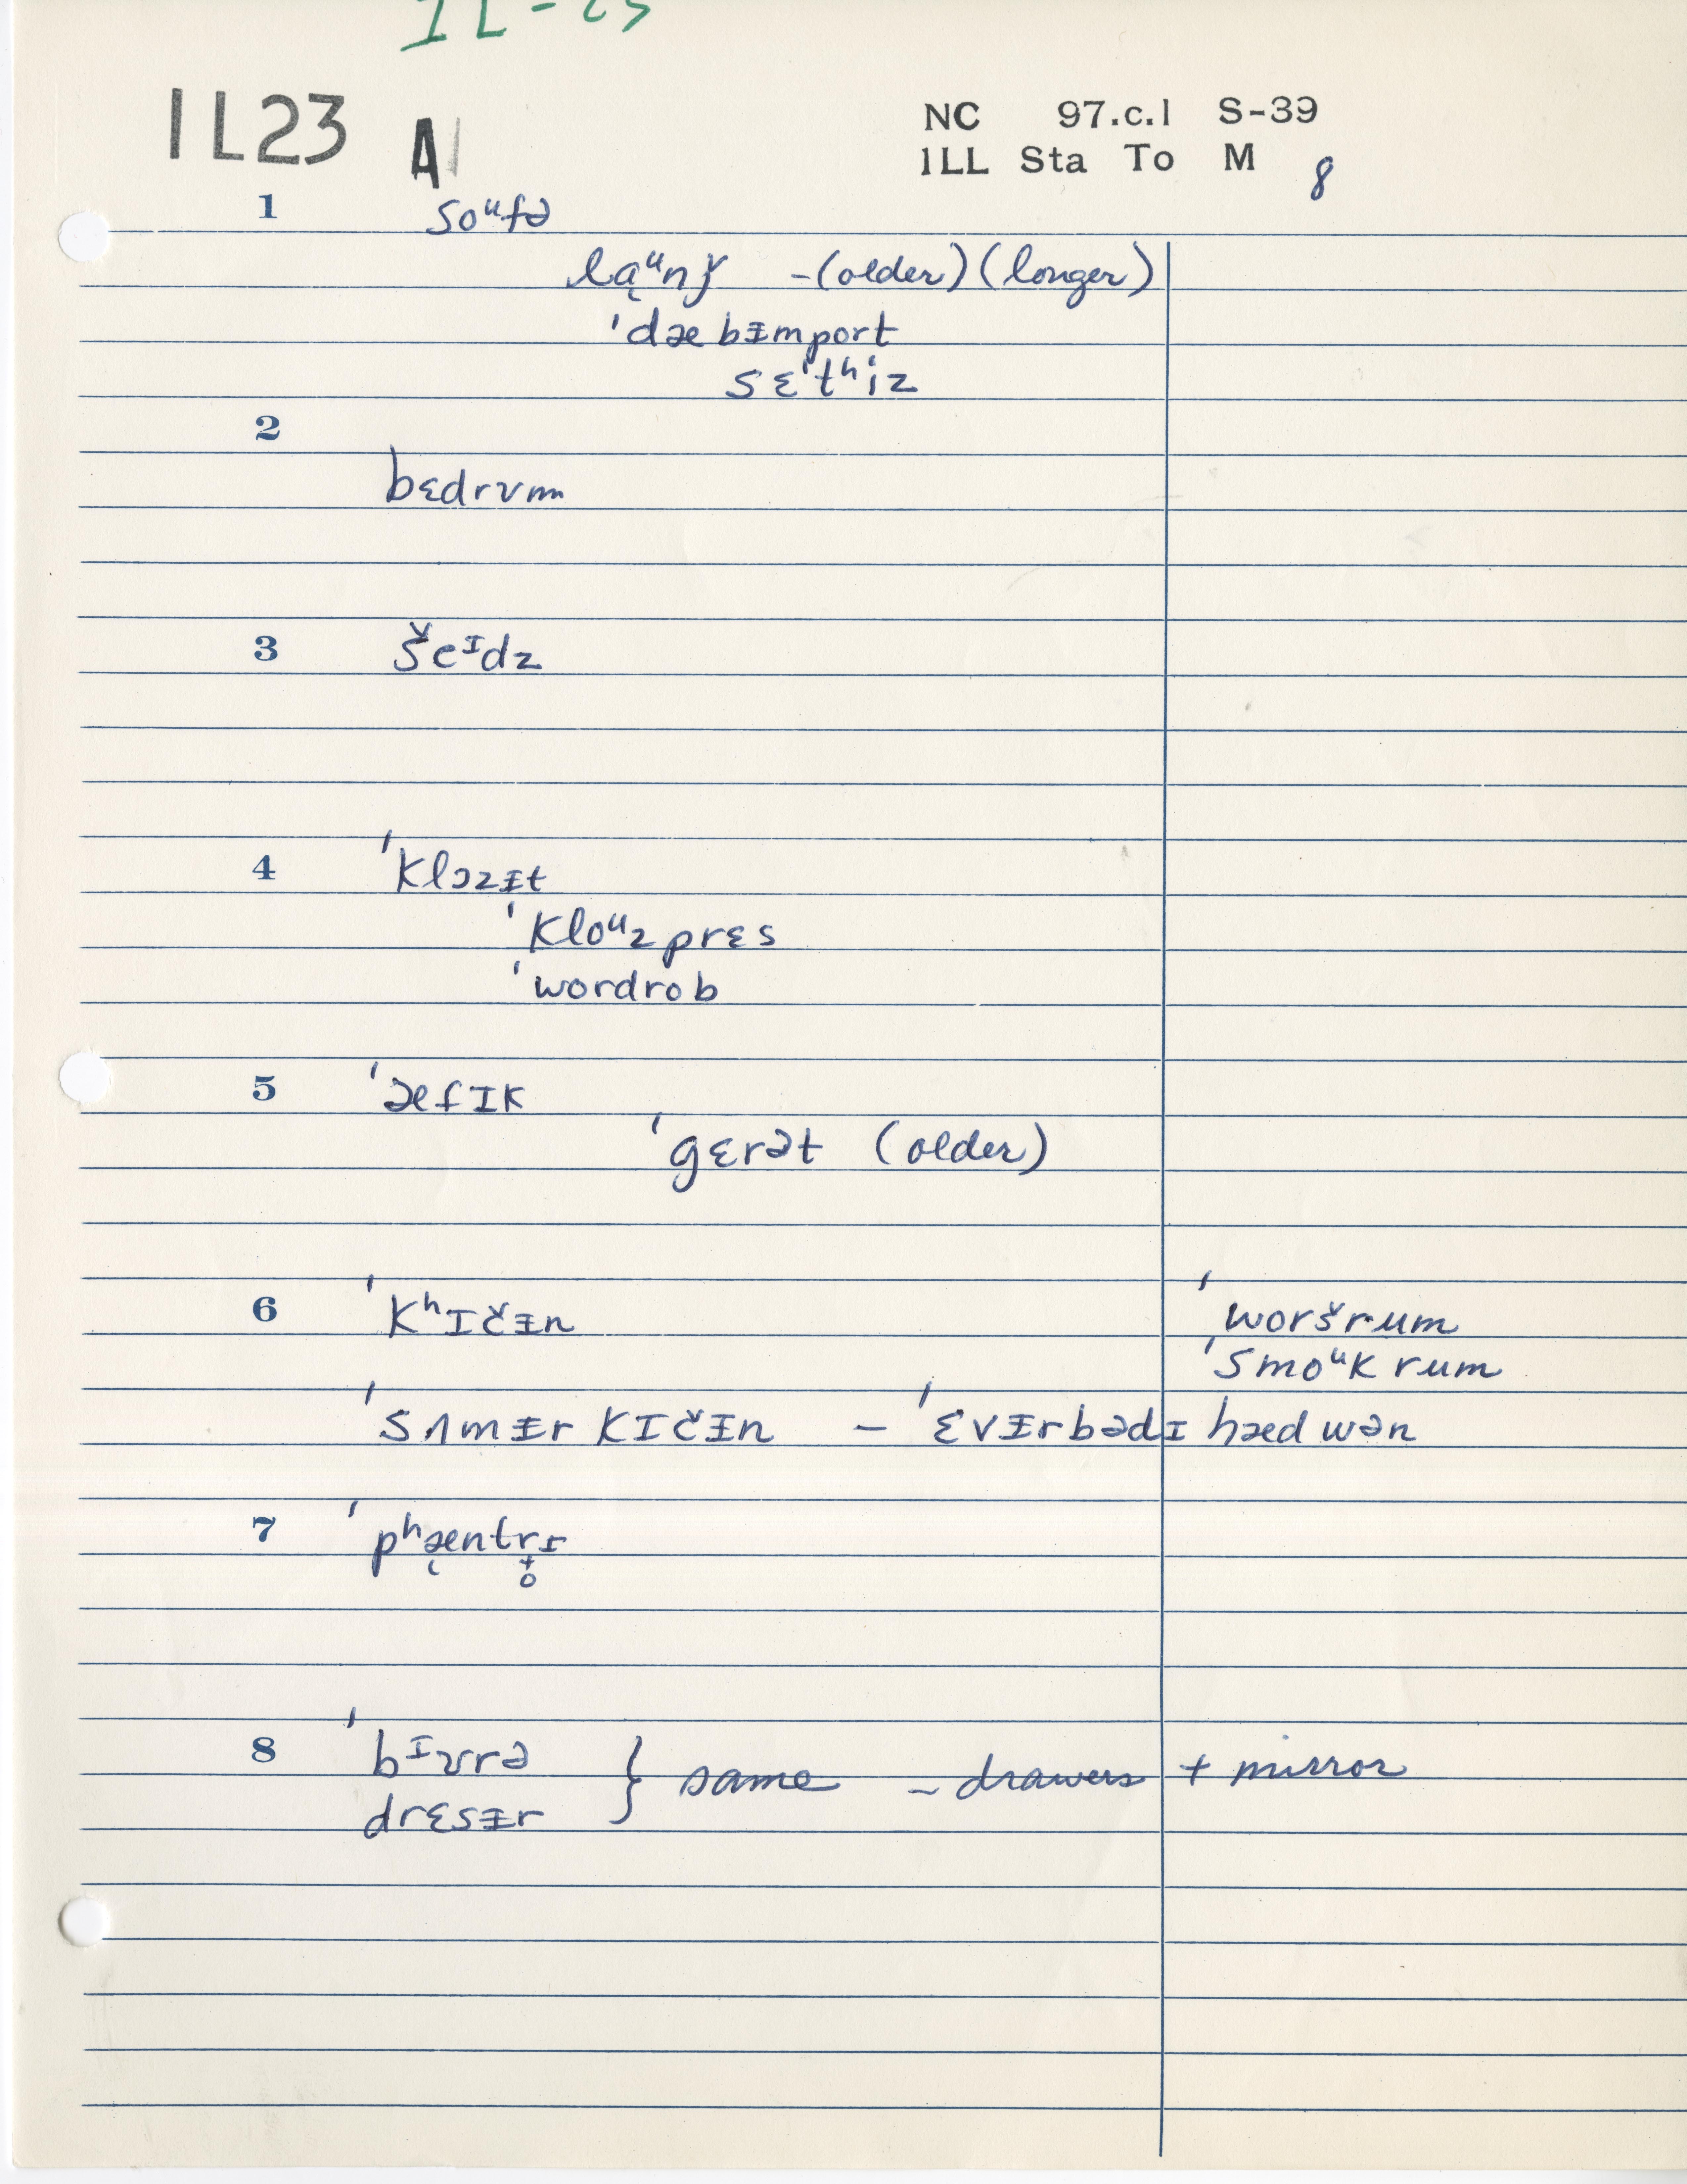 IL-23
IL23 A1
NC 97.c.1 S-39
ILL Sta To M 8
1 soᵘfə
la̜ᵘnǰ -(older) (longer)
'dæbɪ̵mport
sɛⁱtʰiz
2
bɛdrʊm
3 šeᴵdz
4 'klɔzɪ̵t
'kloᵘzprɛs
'wordrob
5 'æfɪk
'gɛrət (older)
6 'kʰɪčɪ̵n 'woršrum
'smoᵘkrum
'sʌmɪ̵r kɪčɪ̵n – 'ɛvɪ̵rbədɪ hæd wən
7 'pʰæ̜ntr̥ɪ
8 'bᴵʊrə } same – drawers + mirror
drɛsɪ̵r